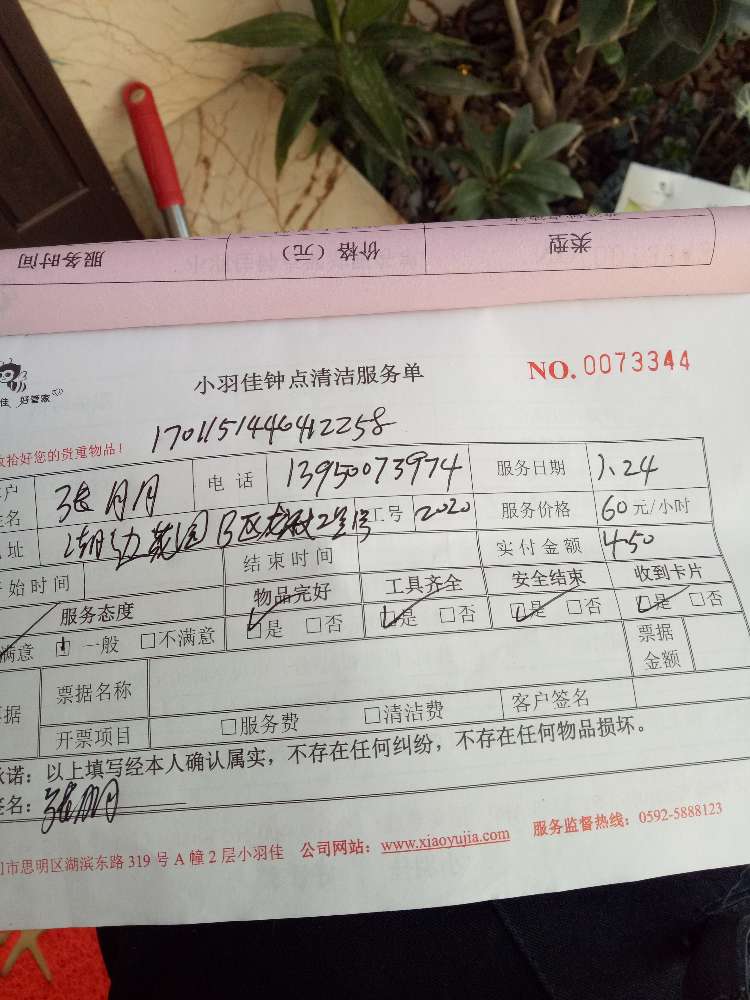 服务时间 价格（元） 类型
小羽佳钟点清洁服务单 NO. 0073344
佳 好管家
收拾好您的贵重物品！ 1701151446412258
户 姓名 张月月 电话 13950073974 服务日期 1.24
址 湖边花园B区 2号 工号 2020 服务价格 60元/小时
开始时间 结束时间 实付金额 450
服务态度 物品完好 工具齐全 安全结束 收到卡片
满意 □一般 □不满意 □是 □否 □是 □否 □是 □否 □是 □否
票据 票据名称 票据金额
开票项目 □服务费 □清洁费 客户签名
承诺：以上填写经本人确认属实，不存在任何纠纷，不存在任何物品损坏。
签名：张月月
门市思明区湖滨东路319号A幢2层小羽佳 公司网站：www.xiaoyujia.com 服务监督热线：0592-5888123